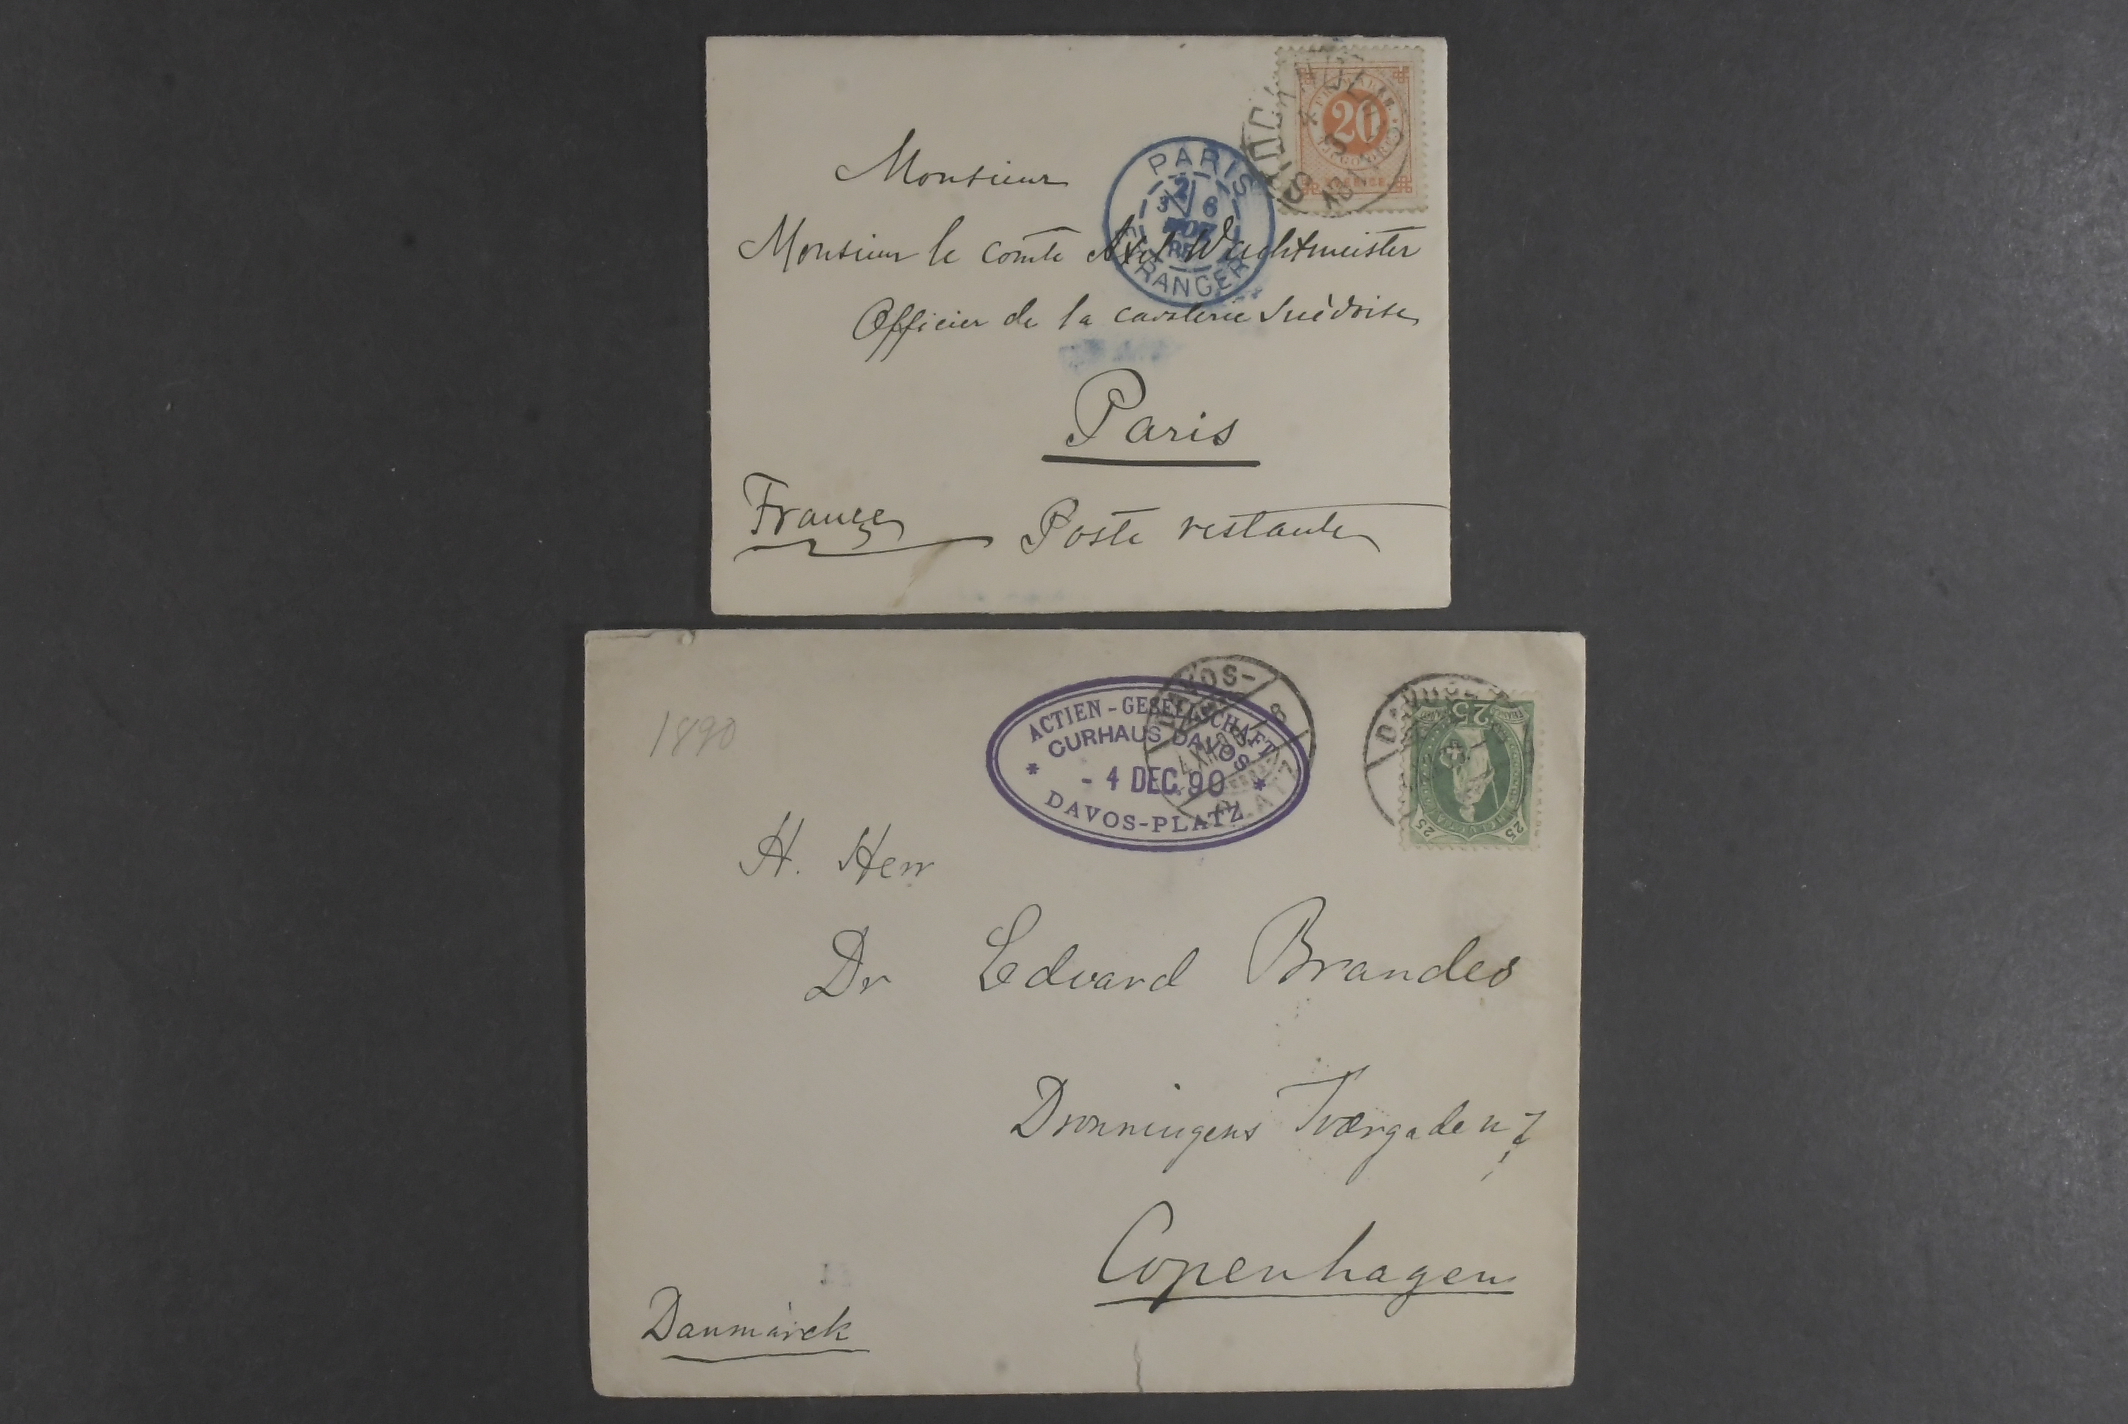 20
PARIS
2
3 6
ETRANGER
Monsieur
Monsieur le comte Axel Wachtmeister
Officier de la cavalerie Suèdoise
Paris
France
Poste restante
1890
ACTIEN-GESELLSCHAFT
CURHAUS DAVOS
- 4 DEC. 90
* DAVOS-PLATZ *
DAVOS-
PLATZ
25
25 25
H. Herr
Dr Edvard Brandes
Dronningens Tværgade n 7
Copenhagen
Danmarck